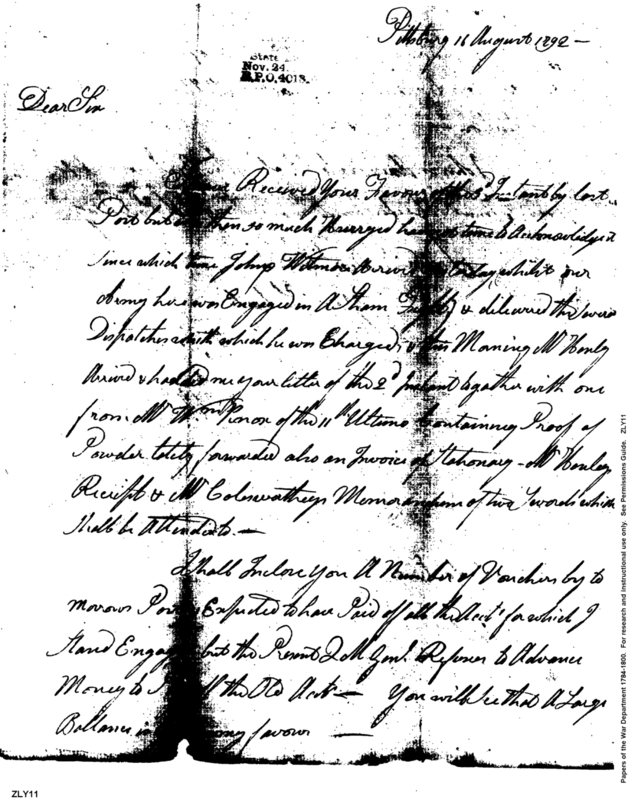 Pittsburg 16 August 1792 —
State
Nov. 24.
R.P.O. 4018.
Dear Sir
Received Your Favour of the Instant by last
Post but then so much Hurryed had not time to Acknowledge it
Since which time John Wilmore Arrived Yesterday whilst our
Army here was Engaged in A Sham Fight & delivered the
Dispatches with which he was Charged, & this Morning Mr Henley
Arrived & handed me your letter of the 2d Instant together with one
from Mr Wm Knox of the 11th Ultimo Containing Proof of
Powder lately forwarded also an Invoice of Stationary - Mr Henleys
Receipt & Mr Memorandum of two Swords which
Shall be Attended to —
I Shall Inclose You A Number of Vouchers by to
morrows Post Expected to have Paid off all the Accts for which I
Stand Engaged but the Present Q M Genl Refuses to Advance
Money to the Old Accts — You will See that A Large
Ballance in my favour —
Papers of the War Department 1784-1800. For research and instructional use only. See Permissions Guide. ZLY11
ZLY11